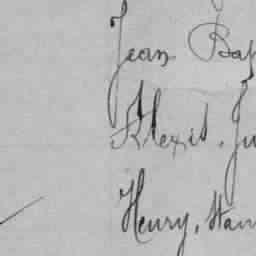 Jean Bap
Alexis, Ju
Henry, Stan